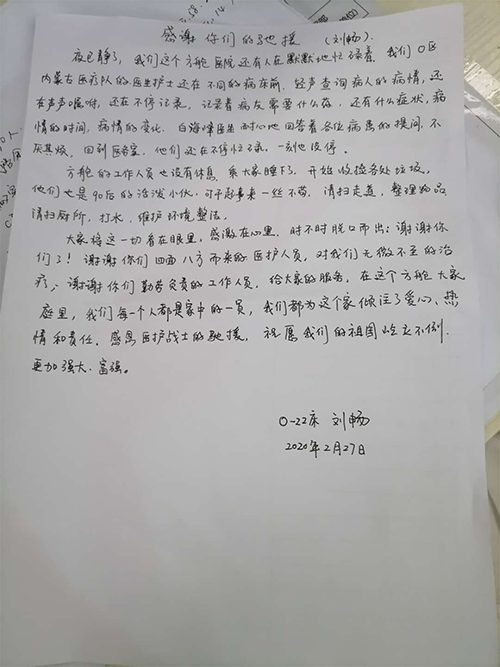 感谢你们的驰援 （刘畅）.
夜已静了，我们这个方舱医院还有人在默默地忙碌着，我们O区
内蒙古医疗队的医生护士还在不同的病床前，轻声查询病人的病情，还
在声声嘱咐，还在不停记录，记录着病友需要什么药，还有什么症状，病
情的时间，病情的变化，白海峰医生耐心地回答着各位病患的提问，不
厌其烦，回到医务室，他们还在不停忙碌，一刻也没停。
方舱的工作人员也没有休息，亲大家睡下了，开始收捡各处垃圾，
他们也是90后的活泼小伙，可干起事来一丝不苟，请扫走道，整理物品
请扫厕所，打水，维护环境整洁。
大家将这一切看在眼里，感激在心里，时不时脱口而出：谢谢你
们了！谢谢你们四面八方而来的医护人员，对我们无微不至的治
疗，谢谢你们勤劳负责的工作人员，给大家的服务，在这个方舱大家
庭里，我们每个人都是家中的一员，我们都为这个家倾注了爱心、热
情和责任，感恩医护战士的驰援，祝愿我们的祖国屹立不倒.
更加强大.富强。
O-22床 刘畅
2020年2月27日